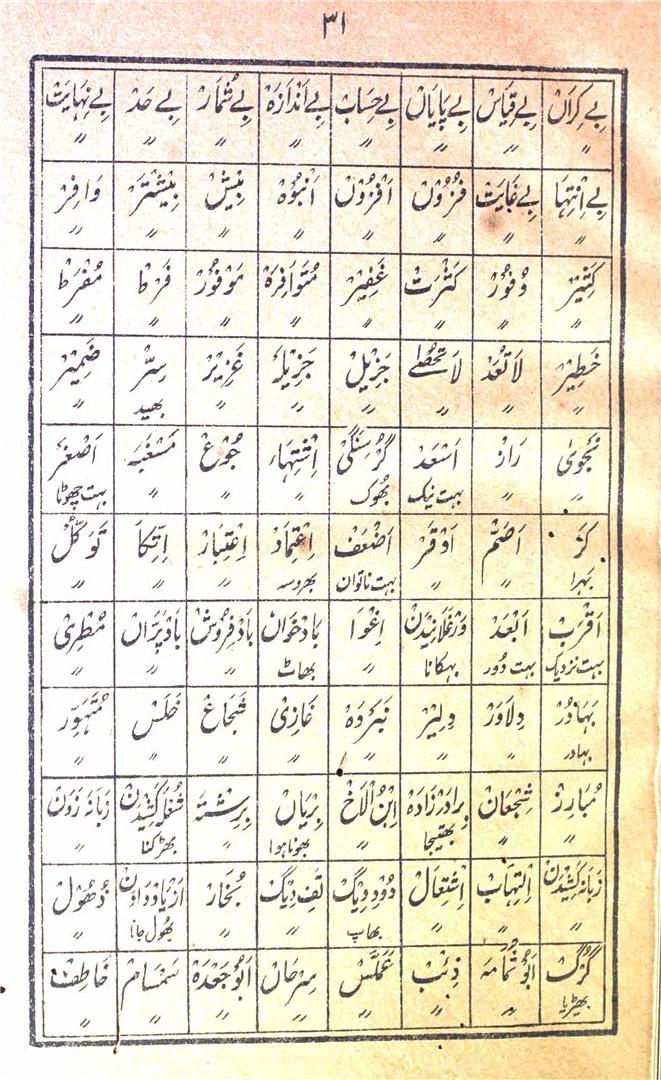 ۳۱
بے کراں بے قیاس بے پایاں بے حساب بے اندازہ بے شمار بے حد بے نہایت
〃 〃 〃 〃 〃 〃 〃 〃
بے انتہا بے غایت فزوں افزوں انبوہ بیش بیشتر وافر
〃 〃 〃 〃 〃 〃 〃 〃
کثیر وفور کثرت غفیر متوافرہ موفور فرط مفرط
〃 〃 〃 〃 〃 〃 〃 〃
خطیر لاتعد لاتحصٰے جزیل جزیلہ غزیر سر ضمیر
〃 〃 〃 〃 〃 〃 بھید 〃
نجویٰ راز اسعد گرسنگی اشتہاء جوع مسغبہ اصغر
〃 〃 بہت نیک بھوک 〃 〃 〃 بہت چھوٹا
کر اصم اوقر اضعف اعتماد اعتبار اتکا توکل
بہرا 〃 〃 بہت ناتوان بھروسہ 〃 〃 〃
اقرب ابعد ورغلانیدن اغوا بادخوان بادفروش بادپراں مطری
بہت نزدیک بہت دور بہکانا 〃 بھاٹ 〃 〃 〃
بہادر دلاور دلیر نبردہ غازی شجاع حلس متہور
بہادر 〃 〃 〃 〃 〃 〃 〃
مبارز شجعان برادرزادہ ابن الاخ بریاں برشتہ شعلہ کشیدن زبانہ زدن
〃 〃 بھتیجا 〃 بھونا ہوا 〃 بھڑکنا 〃
زبانہ کشیدن التہاب اشتعال دود دیگ تف دیگ بخار از یاد دادن ذھول
〃 〃 〃 بھاپ 〃 〃 بھول جانا 〃
گرگ ابو ثمامہ ذئب عملس سرحان ابو جعدہ سمسام خاطف
بھیڑیا 〃 〃 〃 〃 〃 〃 〃